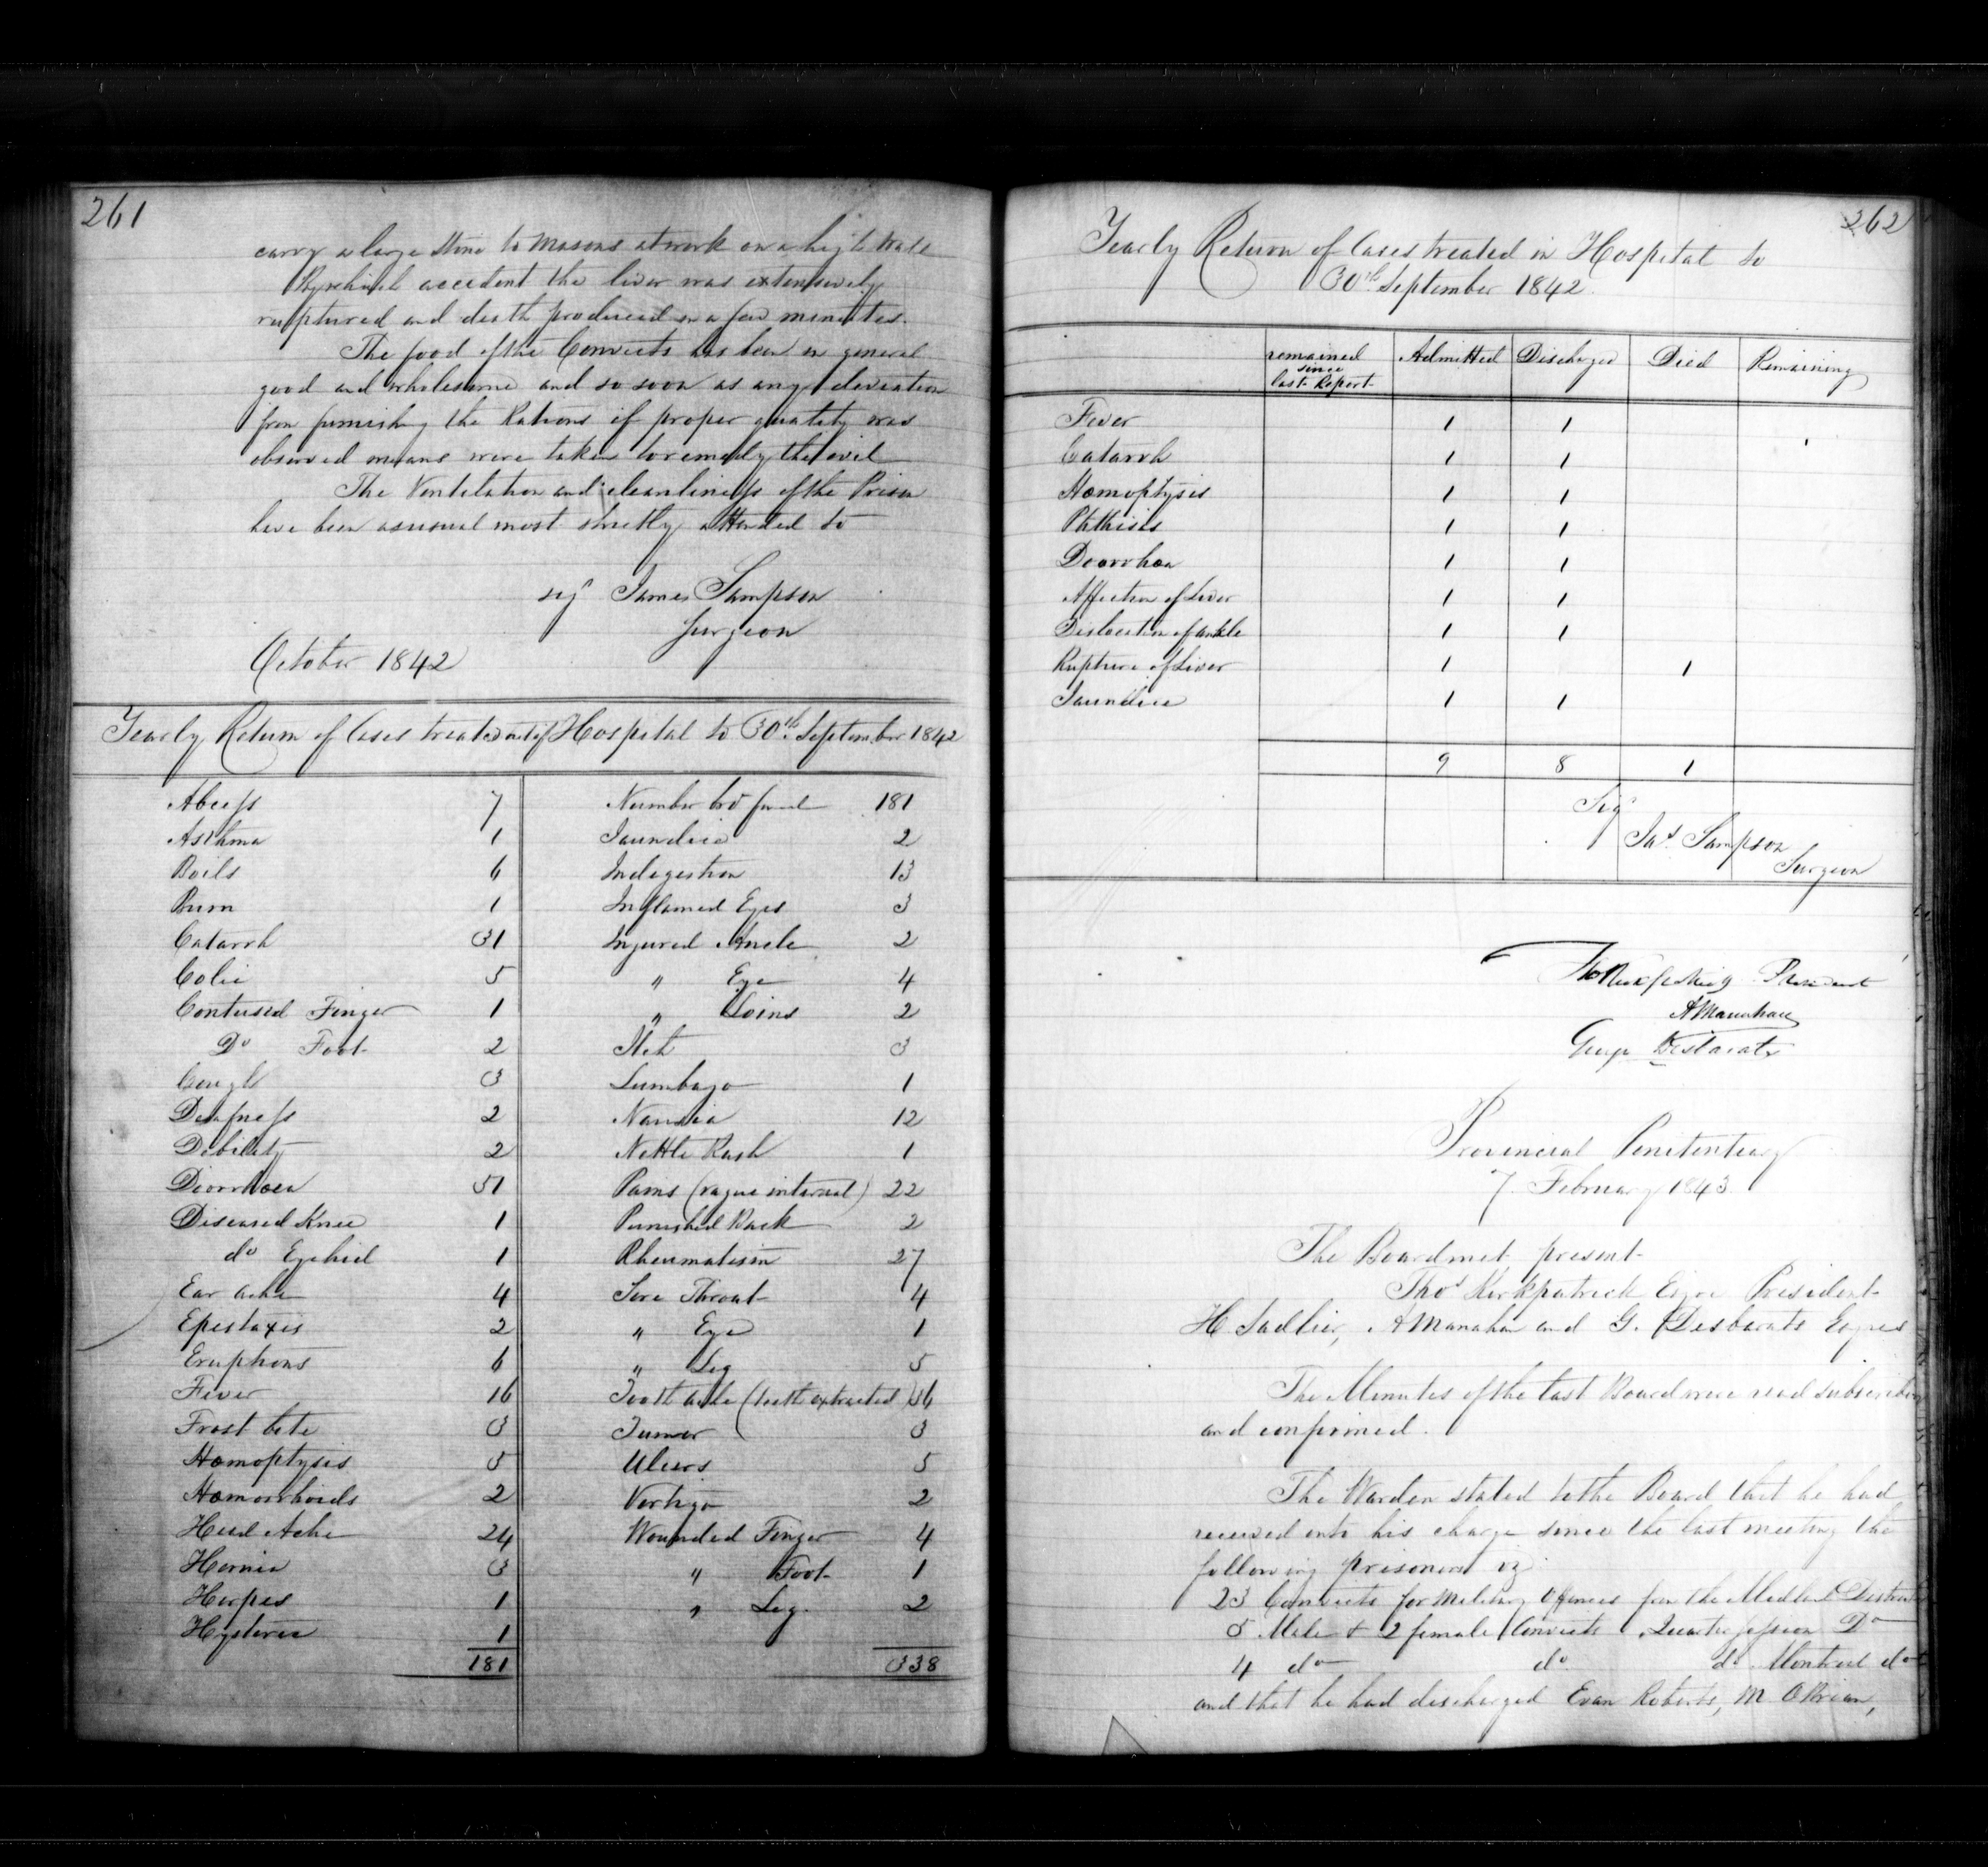 261
carry a large stone to masons at work on a high wall
By which accident the liver was extensively
ruptured and death produced in a few minutes.
The food of the Convicts has been in general
good and wholesome and so soon as any deviation
from furnishing the Rations of proper quality was
observed means were taken to remedy the evil
The Ventilation and cleanliness of the Prison
have been as usual most strictly attended to
sig James Sampson
Surgeon
October 1842
Yearly Return of Cases treated out of Hospital to 30th September 1842
Abcess 7
Asthma 1
Boils 6
Burn 1
Catarrh 31
Colic 5
Contused Finger 1
Do Foot 2
Cough 3
Deafness 2
Debility 2
Diorrhoea 51
Diseased Knee 1
do Eyelid 1
Ear ache 4
Epistaxis 2
Eruptions 6
Fever 16
Frost bite 3
Hæmoptysis 5
Hæmorrhoids 2
Head Ache 24
Hernia 3
Herpes 1
Hysteria 1
181
Number bro forwd 181
Jaundice 2
Indigestion 13
Inflamed Eyes 3
Injured Ancle 2
" Eye 4
" Loins 2
Itch 3
Lumbago 1
Nausia 12
Nettle Rash 1
Pains (vague internal) 22
Punished Back 2
Rheumatism 27
Sore Throat 4
" Eye 1
" Leg 5
Tooth ache (teeth extracted) 36
Tumor 3
Ulcers 5
Vertigo 2
Wounded Finger 4
" Foot 1
" Leg 2
338
262
Yearly Return of Cases treated in Hospital to
30th September 1842.
remained since last Report Admitted Discharged Died Remaining
Fever 1 1
Catarrh 1 1
Hæmoptysis 1 1
Phthisis 1 1
Doorrhœa 1 1
Affection of Liver 1 1
Dislocation of ankle 1 1
Rupture of Liver 1 1
Jaundice 1 1
9 8 1
Sig
Jas Sampson
Surgeon
Tho Kirkpatrick President
A Manahan
George Desbarats
Provincial Penitentiary
7 February 1843.
The Board met, present
Thos Kirkpatrick Esqre President
H Sadlier, A Manahan and G. Desbarats Esqres
The Minutes of the last Board were read subscribed
and confirmed.
The Warden stated to the Board that he had
received into his charge since the last meeting the
following prisoners viz
23 Convicts for Military Offences from the Midland District
5 Male & 2 female Convicts Quarter Session Do
4 do do do Montreal do
and that he had discharged Evan Roberts, M OBrian,